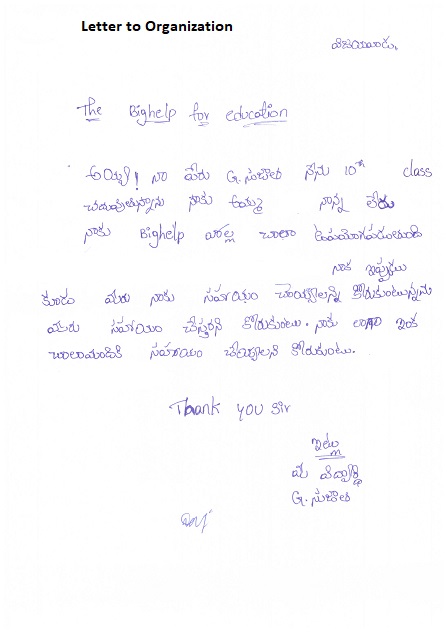 Letter to Organization
విజయవాడ.
The Bighelp for education
అయ్యా! నా పేరు G. సుజాత నేను 10th class
చదువుతున్నాను నాకు అమ్మ నాన్న లేరు
నాకు Bighelp వల్ల చాలా ఉపయోగపడుతుంది
నాకు ఇప్పుడు
కూడా మీరు నాకు సహాయం చేయ్యాలన్ని కోరుకుంటున్నాను
మీరు సహాయం చేస్తారని కోరుకుంటు. నాకు లాగా ఇంక
చాలామందికి సహాయం చేయ్యాలని కోరుకుంటు.
Thank you sir
ఇట్లు
మీ విద్యార్థి
G. సుజాత